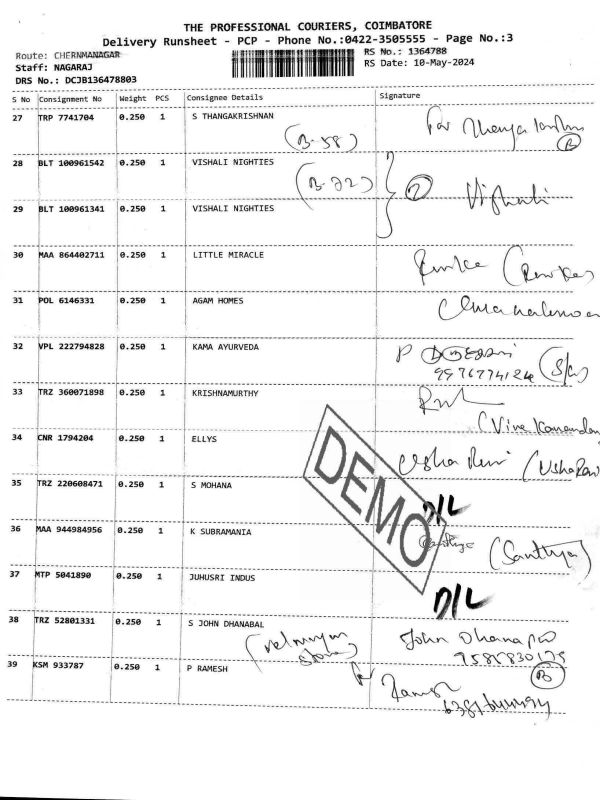 THE PROFESSIONAL COURIERS, COIMBATORE
Delivery Runsheet - PCP - Phone No.:0422-3505555 - Page No.:3
Route: CHERNMANAGAR
RS No.: 1364788
Staff: NAGARAJ
RS Date: 10-May-2024
DRS No.: DCJB136478803
S No Consignment No Weight PCS Consignee Details Signature
27 TRP 7741704 0.250 1 S THANGAKRISHNAN For
(B-58) B
28 BLT 100961542 0.250 1 VISHALI NIGHTIES
(B-72) 2 Vishali
29 BLT 100961341 0.250 1 VISHALI NIGHTIES
30 MAA 864402711 0.250 1 LITTLE MIRACLE
31 POL 6146331 0.250 1 AGAM HOMES
32 VPL 222794828 0.250 1 KAMA AYURVEDA P
9976774124
33 TRZ 360071898 0.250 1 KRISHNAMURTHY
34 CNR 1794204 0.250 1 ELLYS Usha
35 TRZ 220608471 0.250 1 S MOHANA
D/L
36 MAA 944984956 0.250 1 K SUBRAMANIA (Santhya)
37 MTP 5041890 0.250 1 JUHUSRI INDUS
D/L
38 TRZ 52801331 0.250 1 S JOHN DHANABAL John
39 KSM 933787 0.250 1 P RAMESH For B
DEMO